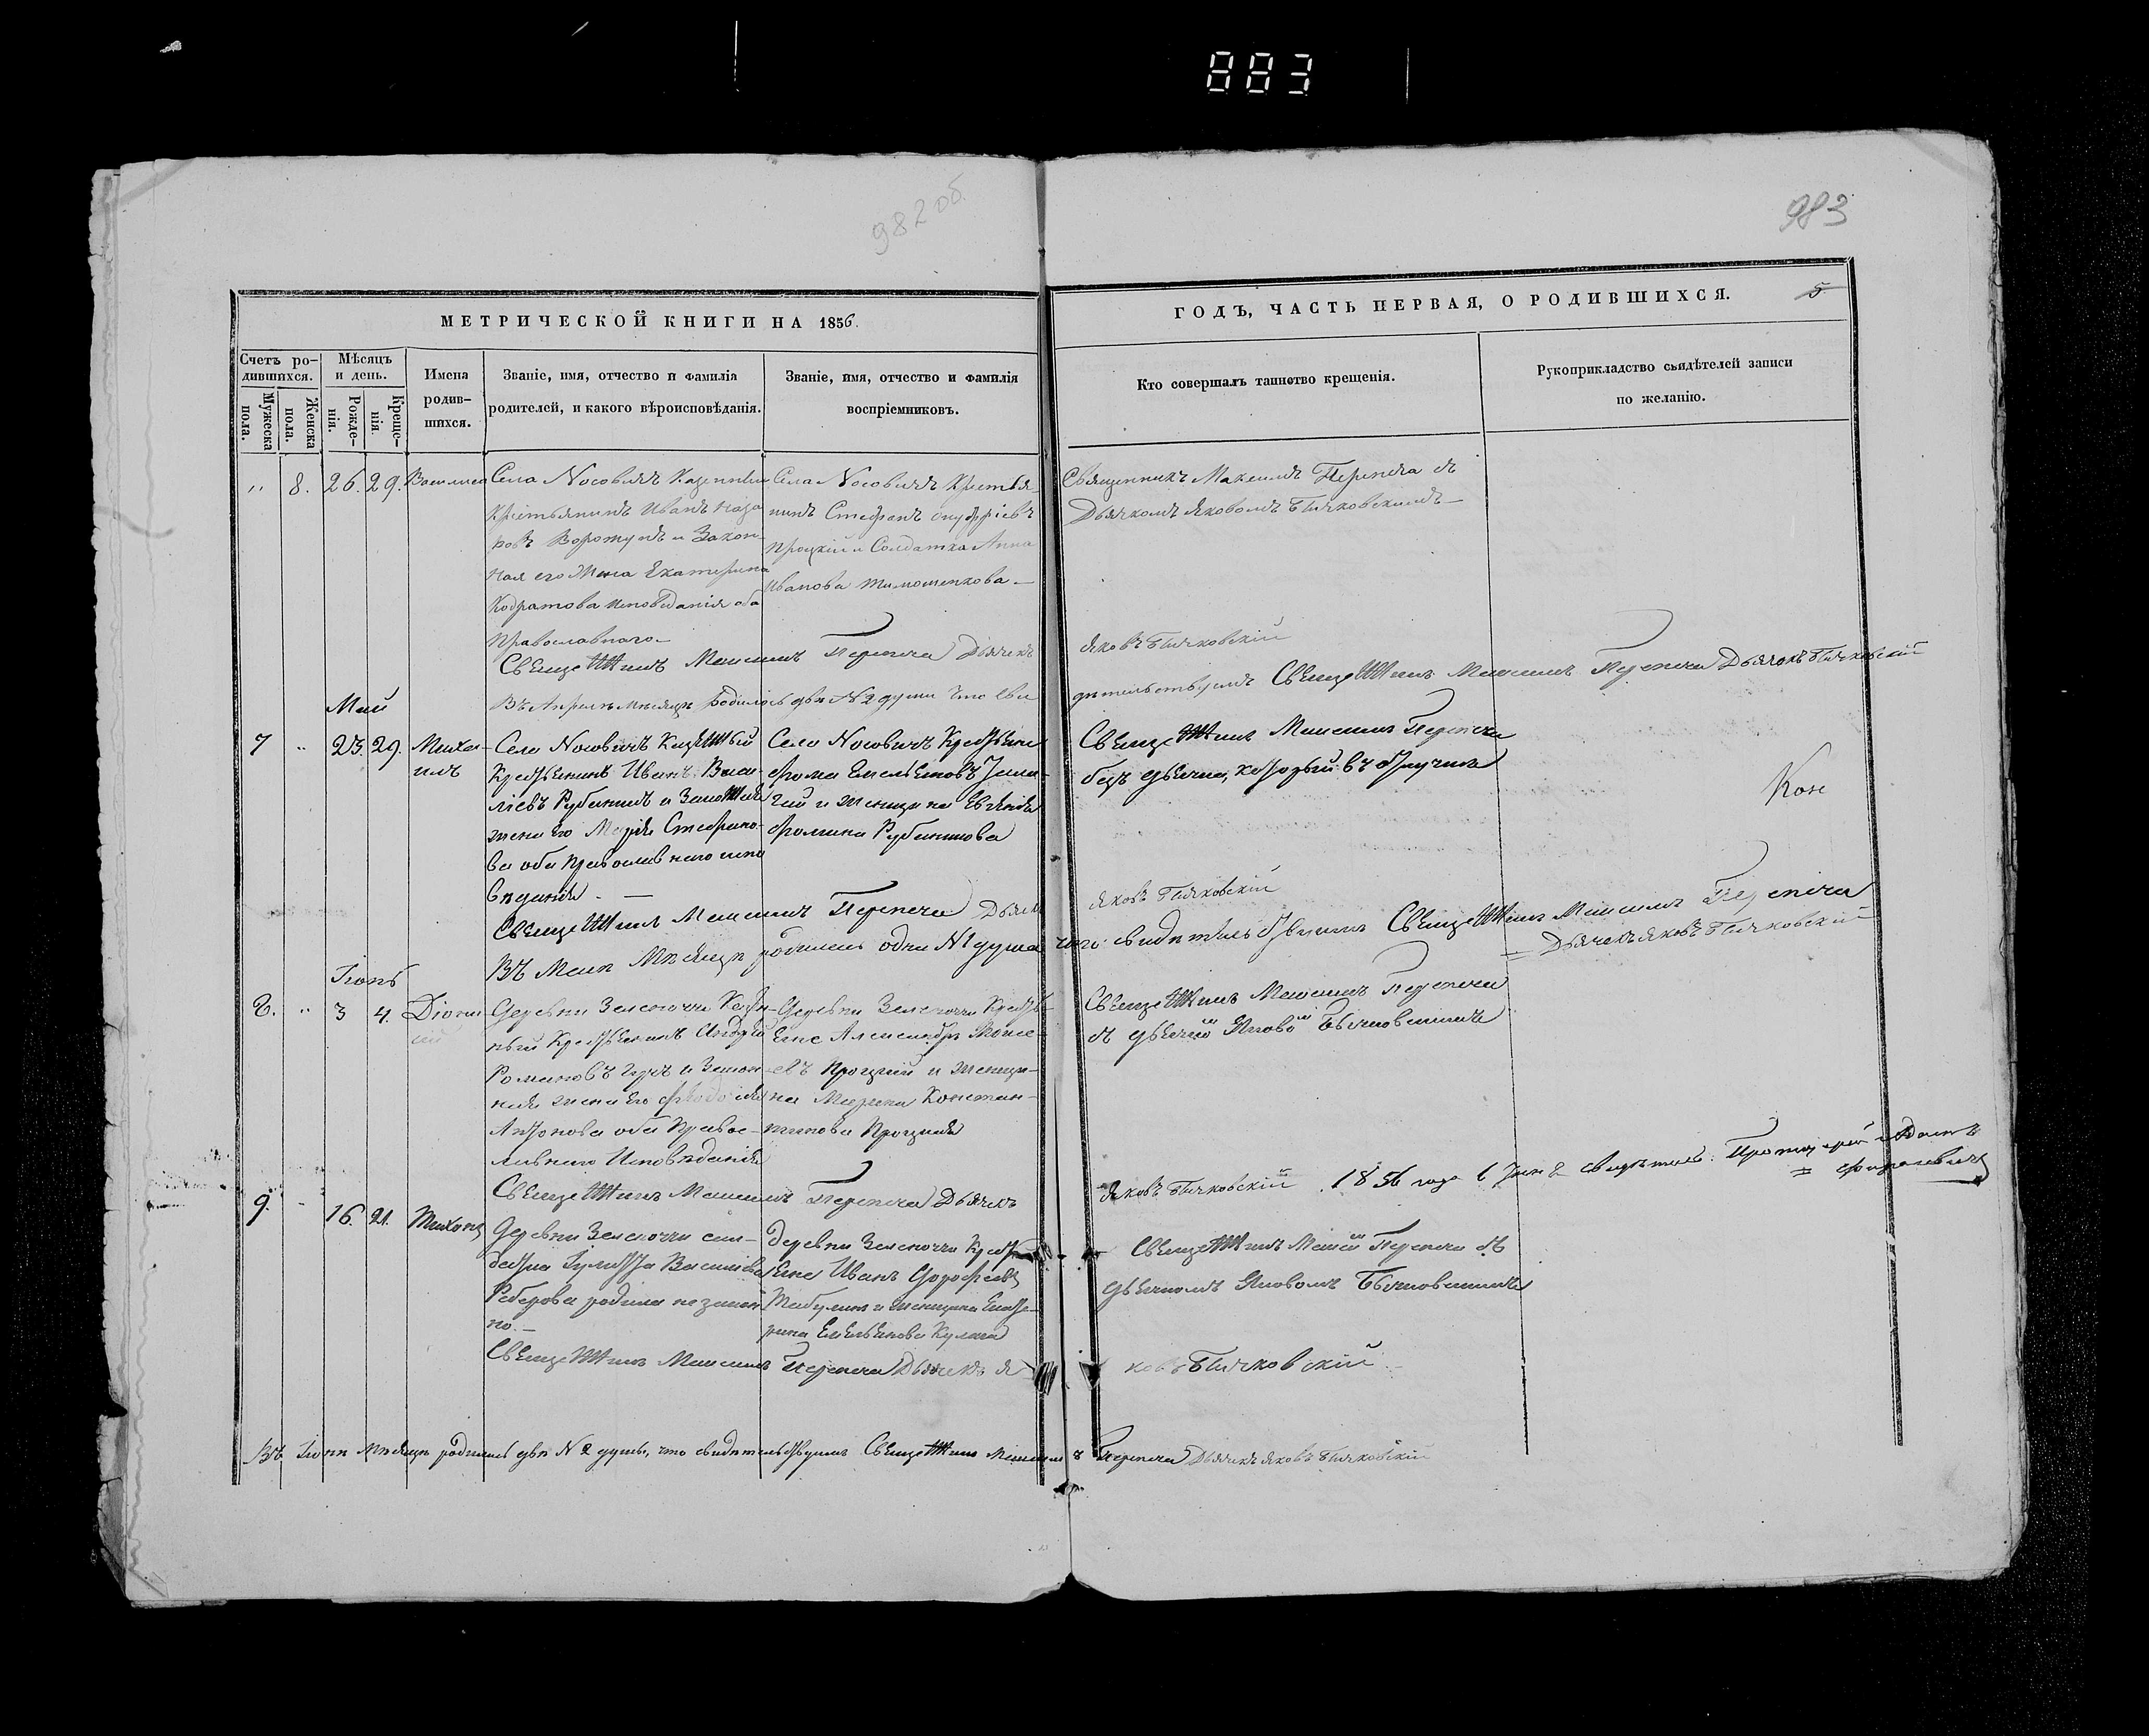 883
982 об.
983
МЕТРИЧЕСКОЙ КНИГИ НА 1856.
ГОДЪ, ЧАСТЬ ПЕРВАЯ, О РОДИВШИХСЯ.
5
Счетъ ро-
дившихся.
Мужеска
пола.
Женска
пола.
Мѣсяцъ
и день.
Рожде-
нія.
Креще-
нія
Имена
родив-
шихся.
Званіе, имя, отчество и фамилія
родителей, и какого вѣроисповѣданія.
Званіе, имя, отчество и фамилія
воспріемниковъ.
Кто совершалъ таинство крещенія.
Рукоприкладство свидѣтелей записи
по желанію.
" 8. 26. 29.
Села Носовичъ Казенный
Крестьянинъ Иванъ Наза
ровъ Ворожунъ и Закон-
ная его Жена Екатерина
Кодратова исповѣданія оба
Православнаго
Села Носовичъ Крестья-
нинъ Стефанъ Онуфріевъ
Процкій и Солдатка Анна
Иванова Тимошенкова
Священникъ Максимъ Перепеча съ
Дьячкомъ Яковомъ Бычковскимъ
Священникъ Максимъ Перепеча Дьячекъ
Яковъ Бычковскій
Въ Апрелѣ мѣсяцѣ родилось двѣ N 2 души что сви
дѣтельствуемъ Священникъ Максимъ Перепеча Дьячокъ Бычковскій
Май
7 " 23. 29. Михаи
илъ
Села Носовичъ Казенный
Крестьянинъ Иванъ Васи-
ліевъ Рубанинъ и Законная
жена его Марія Стефано-
ва оба православнаго испо
вѣданія
Села Носовичъ Крестьяне
Фома Емельяновъ
и женщина Евгенія
Фомина Рубанинова
Священникъ Максимъ Перепеча
безъ дьячка, который въ отлучкѣ
Коп
Священникъ Максимъ Перепеча Дьячек
Яковъ Бычковскій
Въ Маѣ Мѣсяцѣ родилась одна N 1 душа что свидѣтельствуемъ Священникъ Максимъ Перепеча
Дьячекъ Яковъ Бычковскій
Іюнь
8. " 3 4. Діони
сій
Деревни Зеленочи Казен-
ный Крестьянинъ Андрей
Романовъ Гузъ и Закон-
ная жена его Феодосія
Антонова оба Правос-
лавнаго Исповѣданія
Деревни Зеленочи Крестья-
не Александръ Моисе-
евъ Процкій и женщи-
на Марина Констан-
тинова Процкая
Священникъ Максимъ Перепеча
съ дьячкомъ Яковомъ Бычковскимъ
Священникъ Максимъ Перепеча Дьячекъ
Яковъ Бычковскій
1856 года
9. " 16. 21. Тихонъ
Деревни Зеленочи сол-
датка Гулитта Васильева
Реброва родила незакон
но.
деревни Зеленочи Кресть
яне Иванъ Дорофеевъ
Табулинъ и женщина Екате-
рина Емельянова Кулага
Священникъ Максимъ Перепеча съ
дьячкомъ Яковомъ Бычковскимъ
Священникъ Максимъ Перепеча Дьячекъ Я
ковъ Бычковскій
Въ Іюнѣ Мѣсяцѣ родились двѣ N 2 душы, что свидѣтельствуемъ Священникъ Максимъ Перепеча Дьячекъ Яковъ Бычковскій